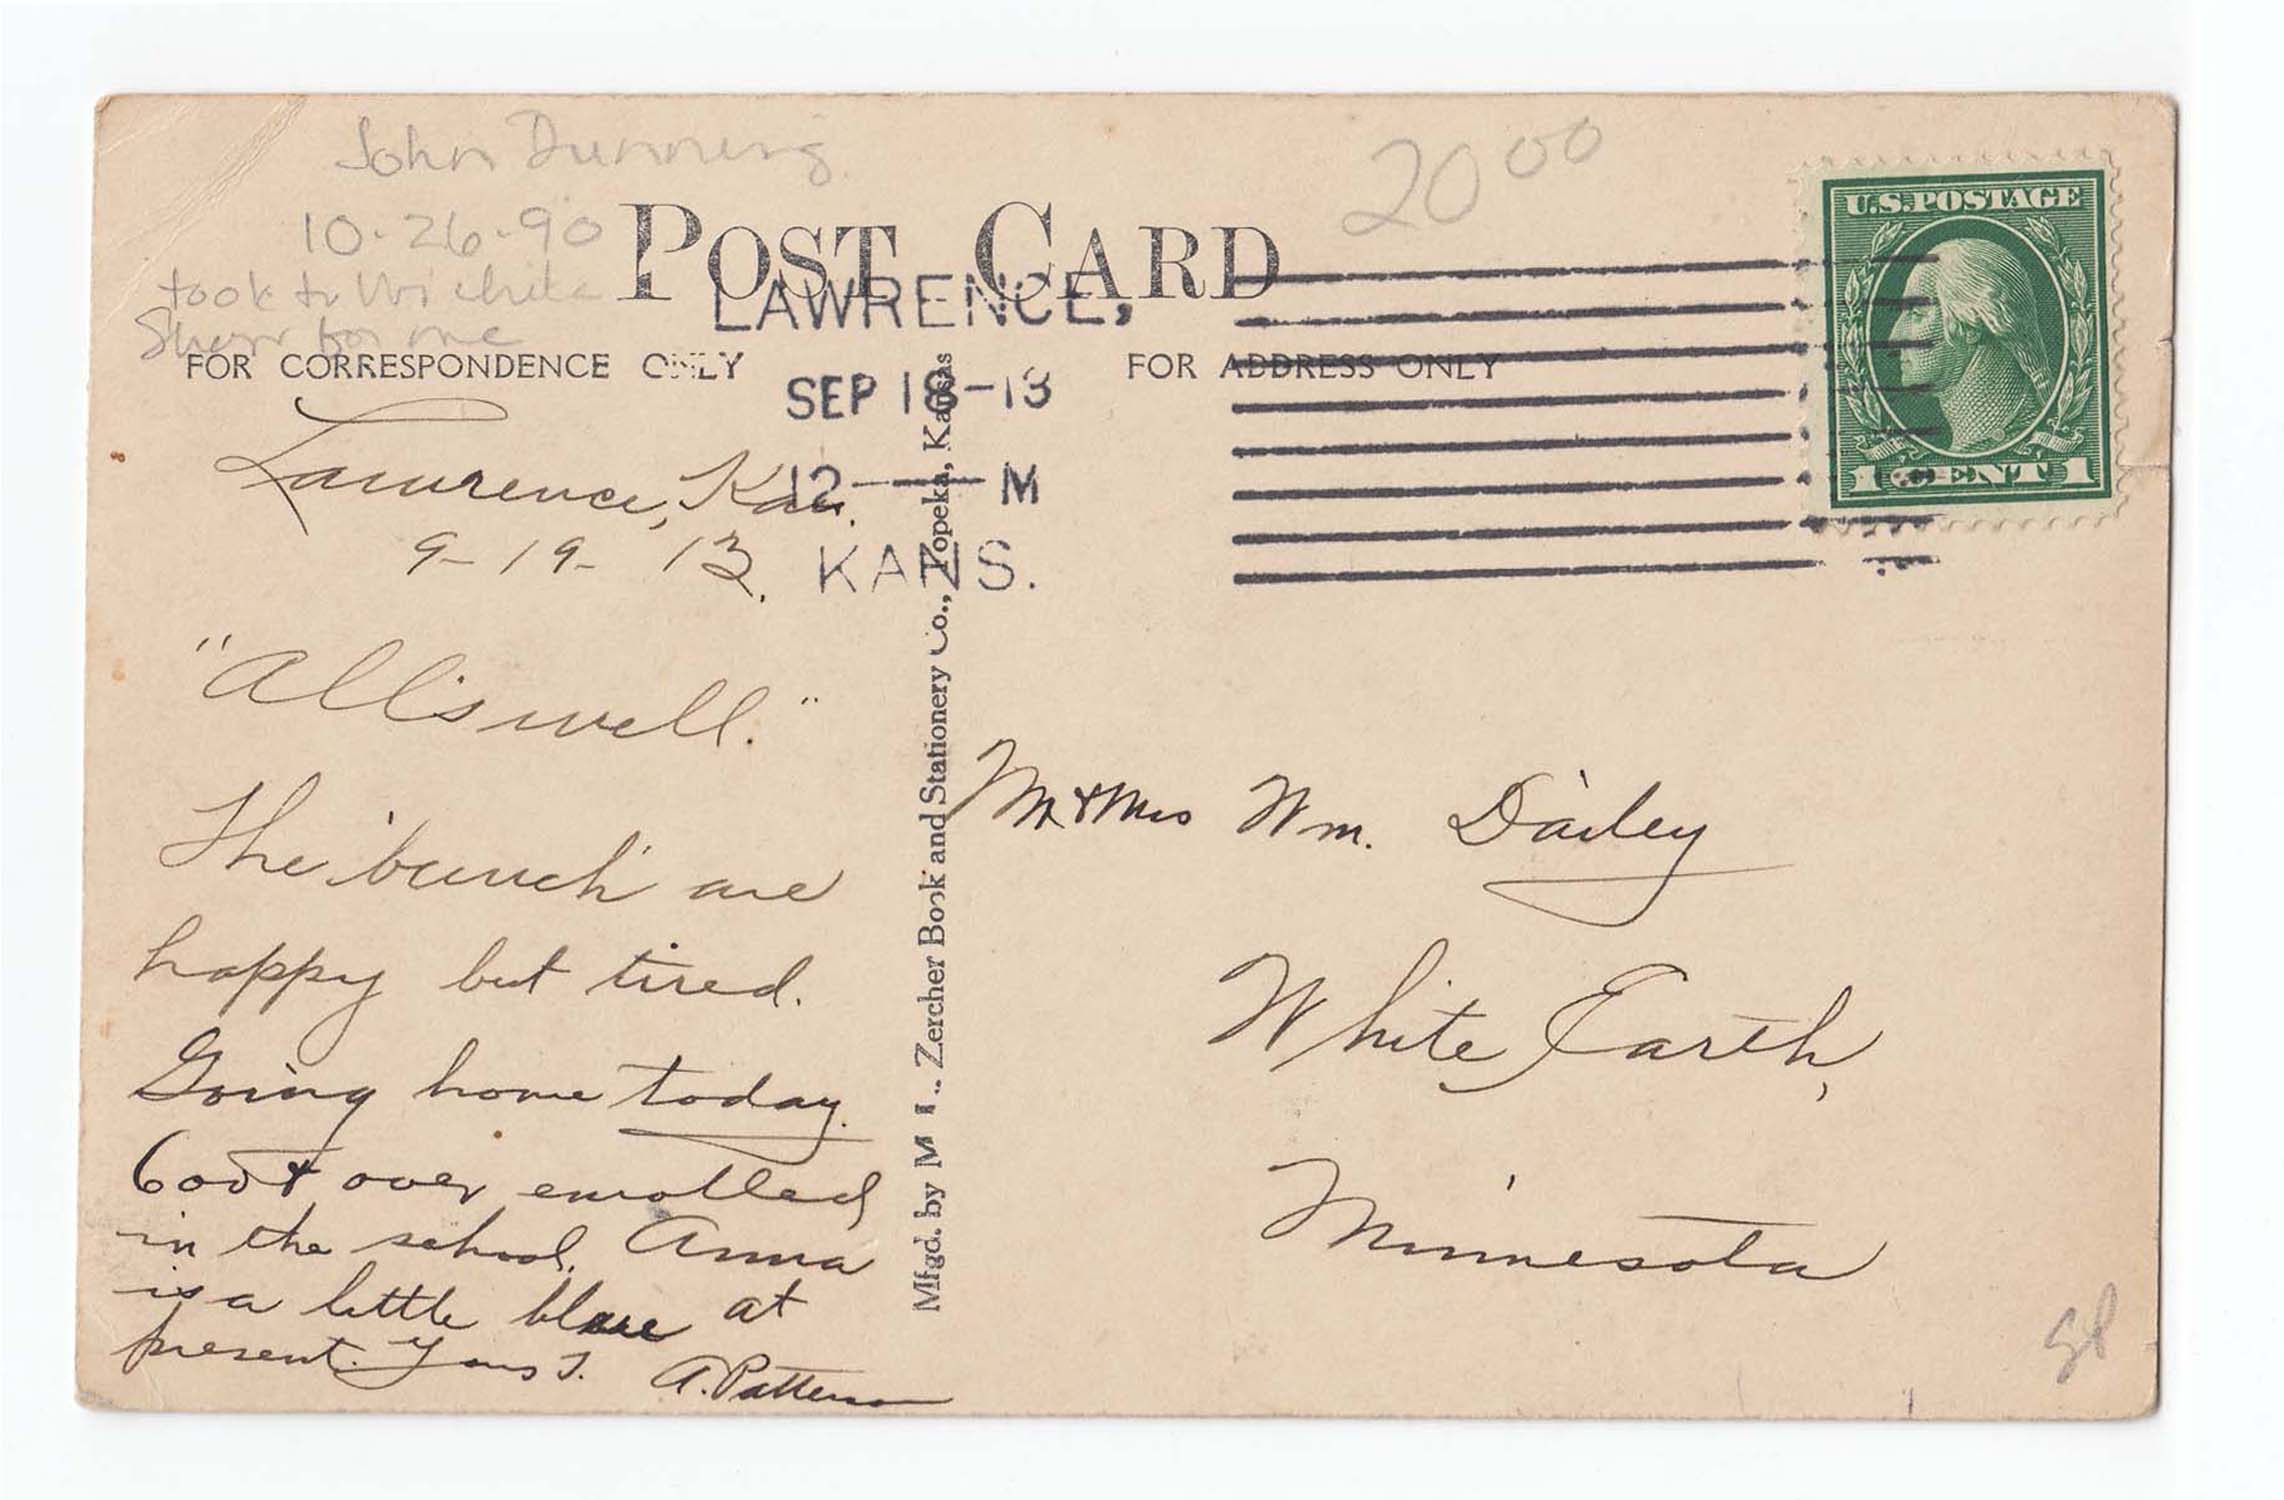 John Dunning
20 00
10-26-90
took to Wichita
Show for me
POST CARD
U.S. POSTAGE
1 CENT 1
LAWRENCE,
SEP 18-13
12 — M
KANS.
FOR CORRESPONDENCE ONLY
FOR ADDRESS ONLY
Lawrence, Kan.
9-19-13.
"All is well."
The 'bunch' are
happy but tired.
Going home today.
600 & over enrolled
in the school. Anna
is a little blue at
present. Yours T.
A. Patterson
Mfgd. by M. L. Zercher Book and Stationery Co., Topeka, Kansas
Mr & Mrs Wm. Dailey
White Earth,
Minnesota